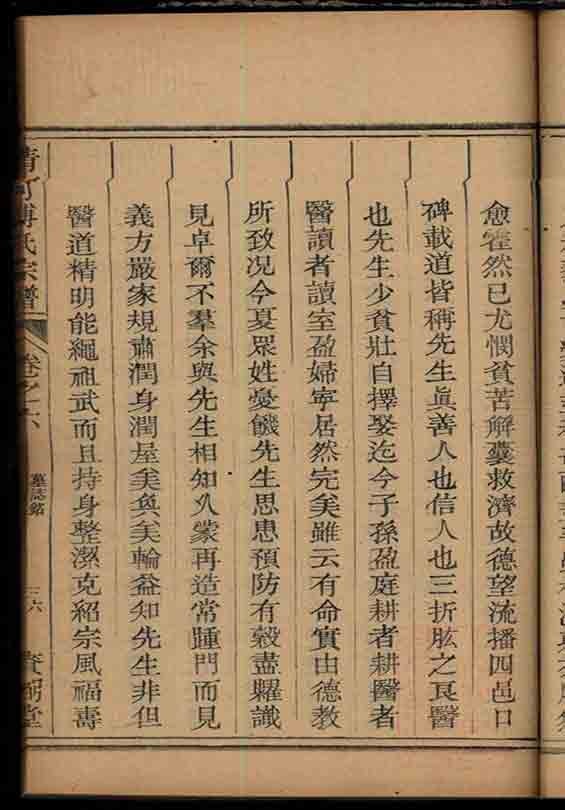 愈霍然已尤憫貧苦解囊救濟故德望流播四邑口
碑載道皆稱先生眞善人也信人也三折肱之良醫
也先生少貧壯自擇娶迄今子孫盈庭耕者耕醫者
醫讀者讀室盈婦寧居然完矣雖云有命實由德教
所致况今夏眾姓憂饑先生思患預防有穀盡糶識
見卓爾不羣余與先生相知久蒙再造常踵門而見
義方嚴家規肅潤身潤屋美奐美輪益知先生非但
醫道精明能繩祖武而且持身整潔克紹宗風福壽
清河傅氏宗譜
卷之六
墓誌銘
三六
堂